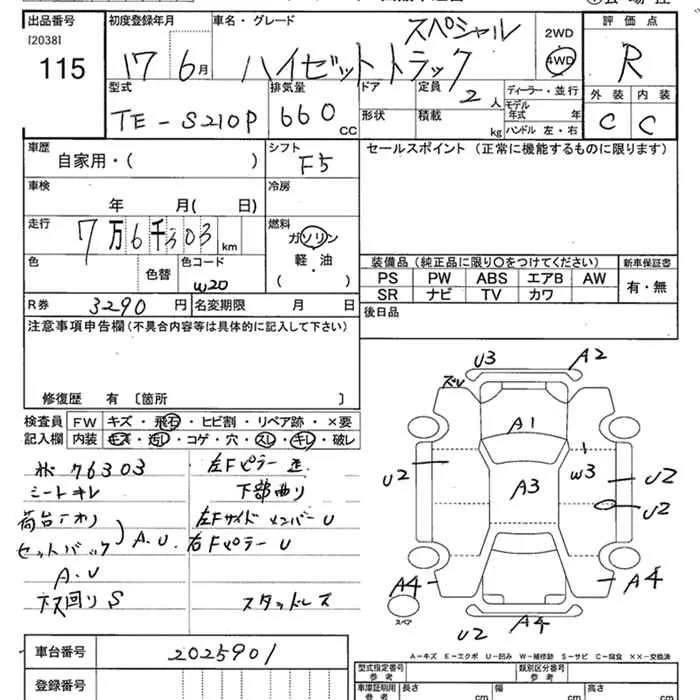 出品番号 初度登録年月 車名・グレード スペシャル 2WD 評価点
[2038]
115 17 6月 ハイゼットトラック 4WD R
型式 排気量 ドア 定員 2人 ディーラー・並行 外装 内装
TE-S210P 660cc 形状 積載 kg モデル年式 年 ハンドル 左・右 C C
車歴 自家用・( ) シフト F5 セールスポイント (正常に機能するものに限ります)
車検 年 月( 日) 冷房
走行 7万6千303km 燃料 ガソリン
軽・油
・
( )
色 色替 色コード W20
装備品 (純正品に限り○をつけてください) 新車保証書
PS PW ABS エアB AW 有・無
SR ナビ TV カワ
R券 3290円 名変期限 月 日 後日品
注意事項申告欄(不具合内容等は具体的に記入して下さい)
修復歴 有 [箇所 ]
検査員 FW キズ・飛石・ヒビ割・リペア跡・×要
記入欄 内装 キズ・汚し・コゲ・穴・スレ・キレ・破レ
76303 左Fピラー
シートキレ 下部曲り
荷台 A.U 左Fサイドメンバー U
セットバック 右Fピラー U
A.U
S スタッドレス
U3 A2
ズレ
A1
U2 A3 W3 U2
U2
A4 A4
スペア U2 A4
A-キズ E-エクボ U-凹み W-補修跡 S-サビ C-腐食 ××-交換済
車台番号 2025901 型式指定番号 参考 類別区分番号 参考
登録番号 車庫証明用 参考 長さ cm 幅 cm 高さ cm